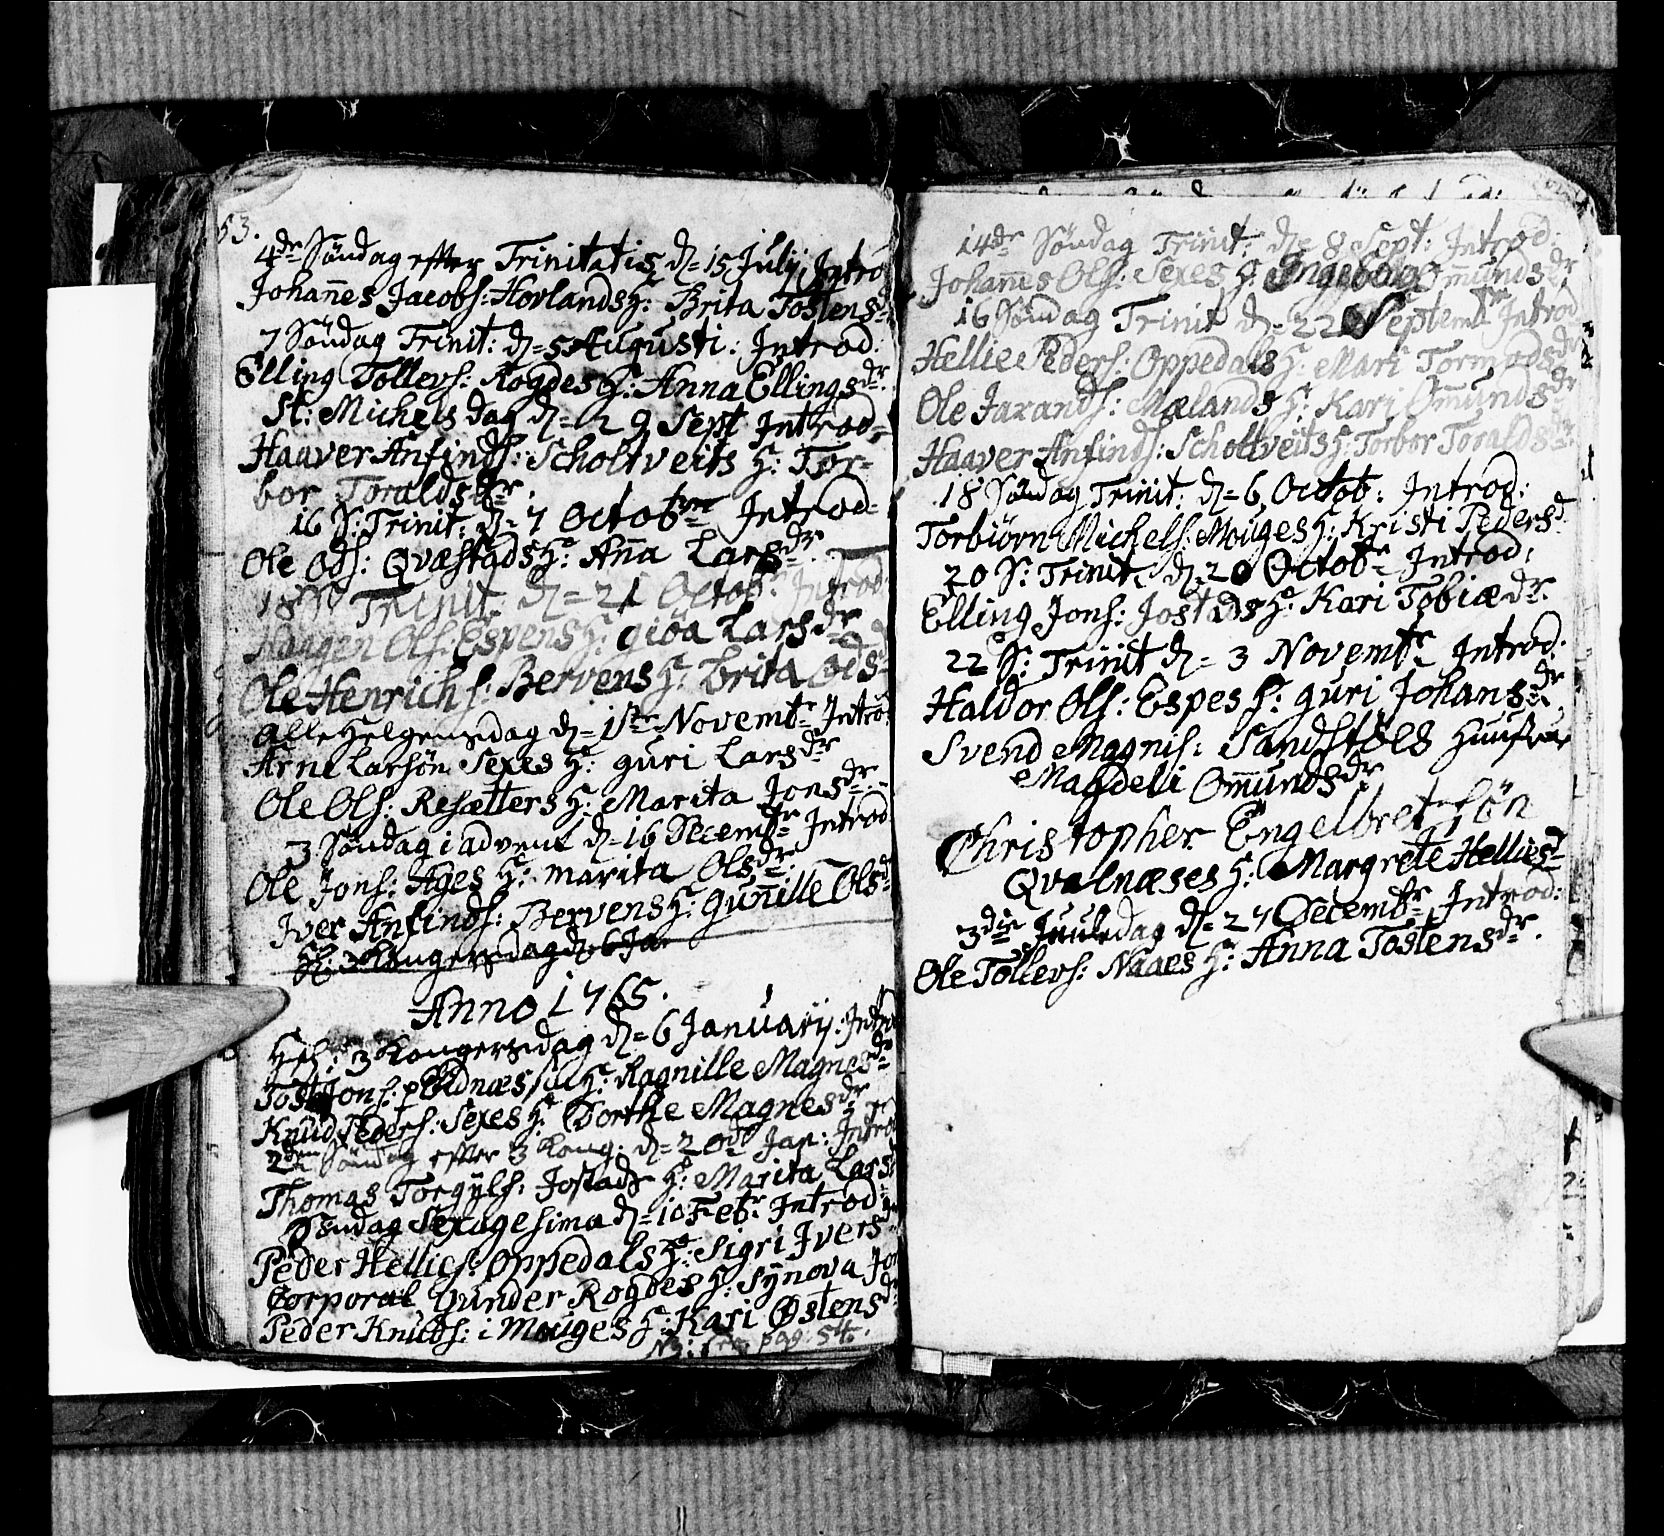 53.
4de Söndag efter Trinitatis d= 15 July, Intro
Johanes Jacobs: Hovlands H: Brita Tostensd
7 Söndag Trinit: d= 5 Augusti: Introd:
Elling Tollevs: Rogdes H: Anna Ellingsdr:
St: Michels dag d= 29 Sept Introd=
Haaver Anfinds: Scholtveits H: Tor-
bor Toraldsdr.
16 S: Trinit: d= 7 Octobre Introd=
Ole Ods: Qvæstads H: Anna Larsdr:
18 S: Trinit d= 21 Octob: Introd:
Haagen Ols: Espens H: giöa Larsdr
Ole Henrichs: Bervens H: brita Olsd
Alle Helgensdag d= 1ste Novembr Introd:
Arne Larsön Sexes H: guri Larsdr
Ole Ols: Resætters H: Marita Jonsdr
3 Söndag i advent d= 16 Decembr Introd
Ole Jons: Ages H: marita Olsdr:
Iver Anfinds: Bervens H: gunille Olsd
Hl: 3 Kongersdag d= 6 Ja
Anno 1765.
Hel: 3 Kongersdag d= 6 January: Intro
Tost Jons: Ednæs H: Ragnille Magnesdr
Knud Peders: Sexes H: Dorthe Magnesdr
2den Söndag efter 3 Kong: d= 20de Jan: Introd
Thomas Torgyls: Jostads H: Marita Larsd
Söndag Sexagesima d= 10 Febr Introd:
Peder Hellies: Oppedals H: Sigri Iversd
Corporal Gunder Rogdes H: Synova Jon
Peder Knuds: i Mouges H: Kari Østensdr
NB: pag: 54.
14de Söndag Trinit: d= 8 Sept: Introd:
Johanes Ols: Sexes H: Ingeborg Omundsdr
16 Söndag Trinit d= 22 Septembr Introd
Hellie Peders: Oppedals H: Mari Tormodsdr
Ole Jaxands: Mælands H: Kari Omundsdr
Haaver Anfinds: Scholtveits H: Torbor Toraldsdr
18 Söndag Trinit: d= 6 Octob: Introd:
Torbiörn Michels: Mouges H: Kristi Pedersd
20 S: Trinit: d= 20 Octobr Introd:
Elling Jons: Jostads H: Kari Tobiædr:
22 S: Trinit d= 3 Novembr Introd:
Haldor Ols: Espes H: guri Johansdr
Svend Magnis: Sandstöes Huusfrue
Magdeli Omundsdr
Christopher Engelbretsön
Qvalnæses H: Margrete Helliesd
3die Juuledag d= 27 Decembr Introd:
Ole Tollevs: Naaes H: Anna Tostensdr.